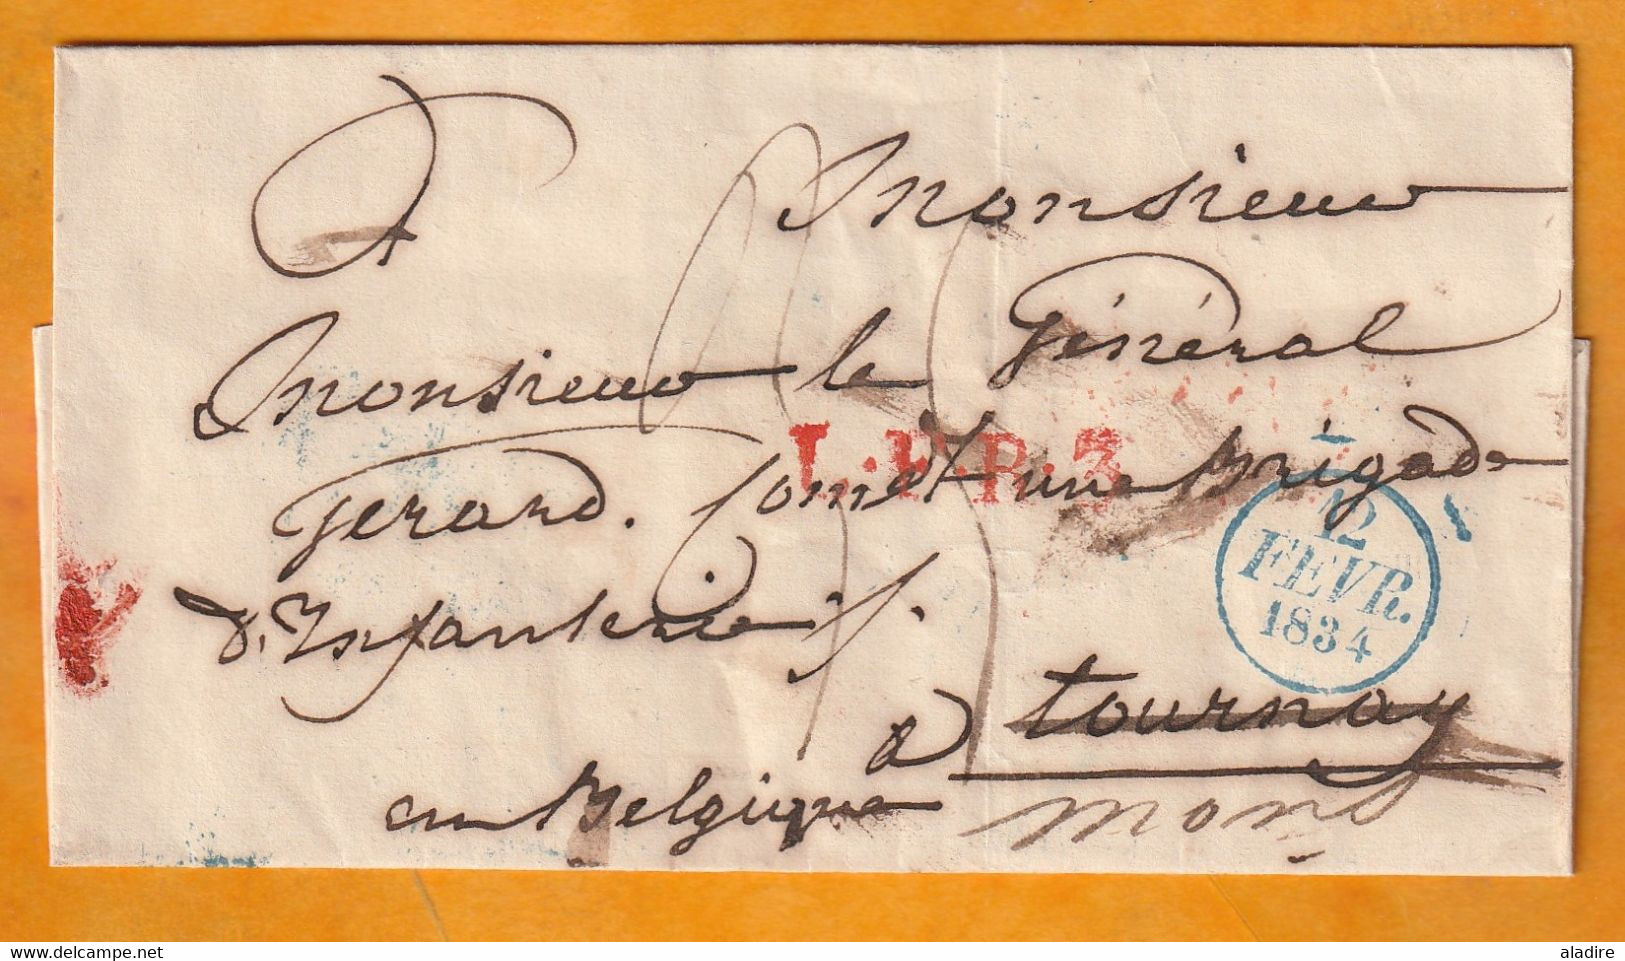 A Monsieur
Monsieur le Général
Gerard. Comdt une Brigade
d'Infanterie /.
à tournay
en Belgique
mons
L.P.B.3
12
FEVR.
1834
www.delcampe.net
aladire